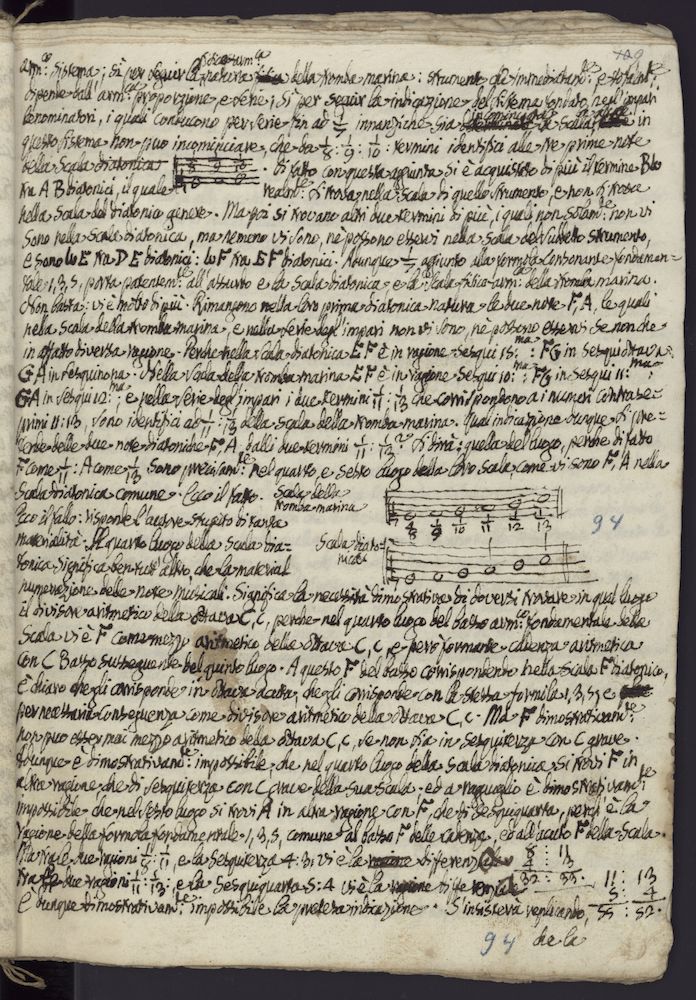 arm.co Sistema; sì per seguir la natura della Tromba marina: strumento che immediatam.te, e totalm.te
dipende dall'arm.ca proporzione, e serie; sì per seguir la indicazione del sistema fondato negl'impari
denominatori, i quali conducono per serie fin ad 1/7 innanzi che sia la Scala; e in
questo sistema non può incominciare, che da 1/8 : 1/9 : 1/10 : termini identifici alle tre prime note
della Scala diatonica 8 9 10 Di fatto con questa aggiunta si è acquistato di più il termine B b
tra A B diatonici, il quale realm.te si trova nella Scala di quello strumento, e non si trova
nella Scala del diatonico genere. Ma poi si trovano altri due termini di più, i quali non solam.te non vi
sono nella Scala diatonica, ma nemeno vi sono, nè possono esservi nella Scala del suddetto strumento,
e sono lo E tra D E diatonici: lo F tra E F diatonici. Adunque 1/7 aggiunto alla formola consonante fondamen=
tale 1, 3, 5, porta patentem.te all'assurdo e la Scala diatonica, e la Scala fisico-arm.ca della Tromba marina.
Non basta: vi è molto di più. Rimangono nella loro prima diatonica natura le due note F, A, le quali
nella Scala della Tromba marina, e nella serie degl'impari non vi sono, nè possono esservi se non che
in affatto diversa ragione. Perchè nella Scala diatonica E F è in ragione sesqui 15:ma : F G in sesquiottava:
G A in sesquinona. Nella Scala della Tromba marina E F è in ragione sesqui 10:ma : F G in sesqui 11:ma
G A in sesqui 12:ma; e nella serie degl'impari i due termini 1/11 : 1/13 che corrispondono ai numeri contrase=
primi 11:13, sono identifici ad 1/11 : 1/13 della Scala della Tromba marina. Qual indicazione dunque si pre=
tende delle due note diatoniche F, A, dalli due termini 1/11 : 1/13? Si dirà: quella del luogo, perchè di fatto
F come 1/11 : A come 1/13 sono precisam.te nel quarto e sesto luogo della loro Scala, come vi sono F, A nella
Scala diatonica comune. Ecco il fatto. Scala della Tromba marina 1/8 1/9 1/10 1/11 1/12 1/13
Ecco il fallo: risponde l'autore stupito di tanta
94
materialità. Il quarto luogo della Scala dia= Scala diatonica
tonica significa tutt'altro che la material
numerazione delle note musicali. Significa la necessità dimostrativa di doversi trovare in qual luogo
il divisore aritmetico della ottava C, C, perchè nel quarto luogo del basso arm.co fondamentale della
Scala vi è F come mezzo aritmetico della ottava C, C, e però formante cadenza aritmetica
con C Basso susseguente del quinto luogo. A questo F del basso corrispondendo nella Scala F diatonico,
è chiaro che gli corrisponde in ottava acuta; che gli corrisponde con la stessa formula 1, 3, 5; e
per necessaria conseguenza come divisore aritmetico della ottava C, C. Ma F dimostrativam.te
non può esser mai mezzo aritmetico della ottava C, C, se non sia in sesquiterza con C grave.
Adunque è dimostrativam.te impossibile, che nel quarto luogo della Scala diatonica si trovi F in
altra ragione che di sesquiterza con C grave della sua Scala; ed a ragguaglio è dimostrativam.te
impossibile che nel sesto luogo si trovi A in altra ragione con F, che di sesquiquarta, perchè è la
ragione della formola fondamentale 1, 3, 5, comune al basso F della cadenza, ed all'acuto F della Scala.
Ma tra le due ragioni 1/8 : 1/11, e la sesquiterza 4:3, vi è la differenza 8 : 11 4 : 3 32 : 33
tra le due ragioni 1/11 : 1/13, e la sesquiquarta 5:4 vi è la differenza 11 : 13 5 : 4 55 : 52
È dunque dimostrativam.te impossibile la pretesa indicazione. S'insisterà replicando,
94 che la